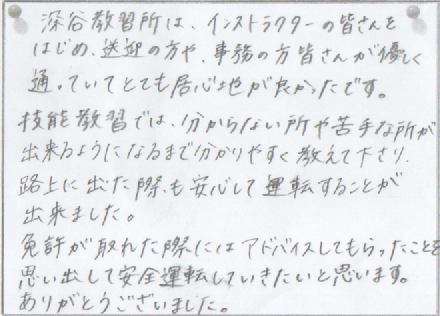 深谷教習所は、インストラクターの皆さんを
はじめ、送迎の方や、事務の方皆さんが優しく
通っていてとても居心地が良かったです。
技能教習では、分からない所や苦手な所が
出来るようになるまで分かりやすく教えて下さり、
路上に出た際も安心して運転することが
出来ました。
免許が取れた際にはアドバイスしてもらったことを
思い出して安全運転していきたいと思います。
ありがとうございました。